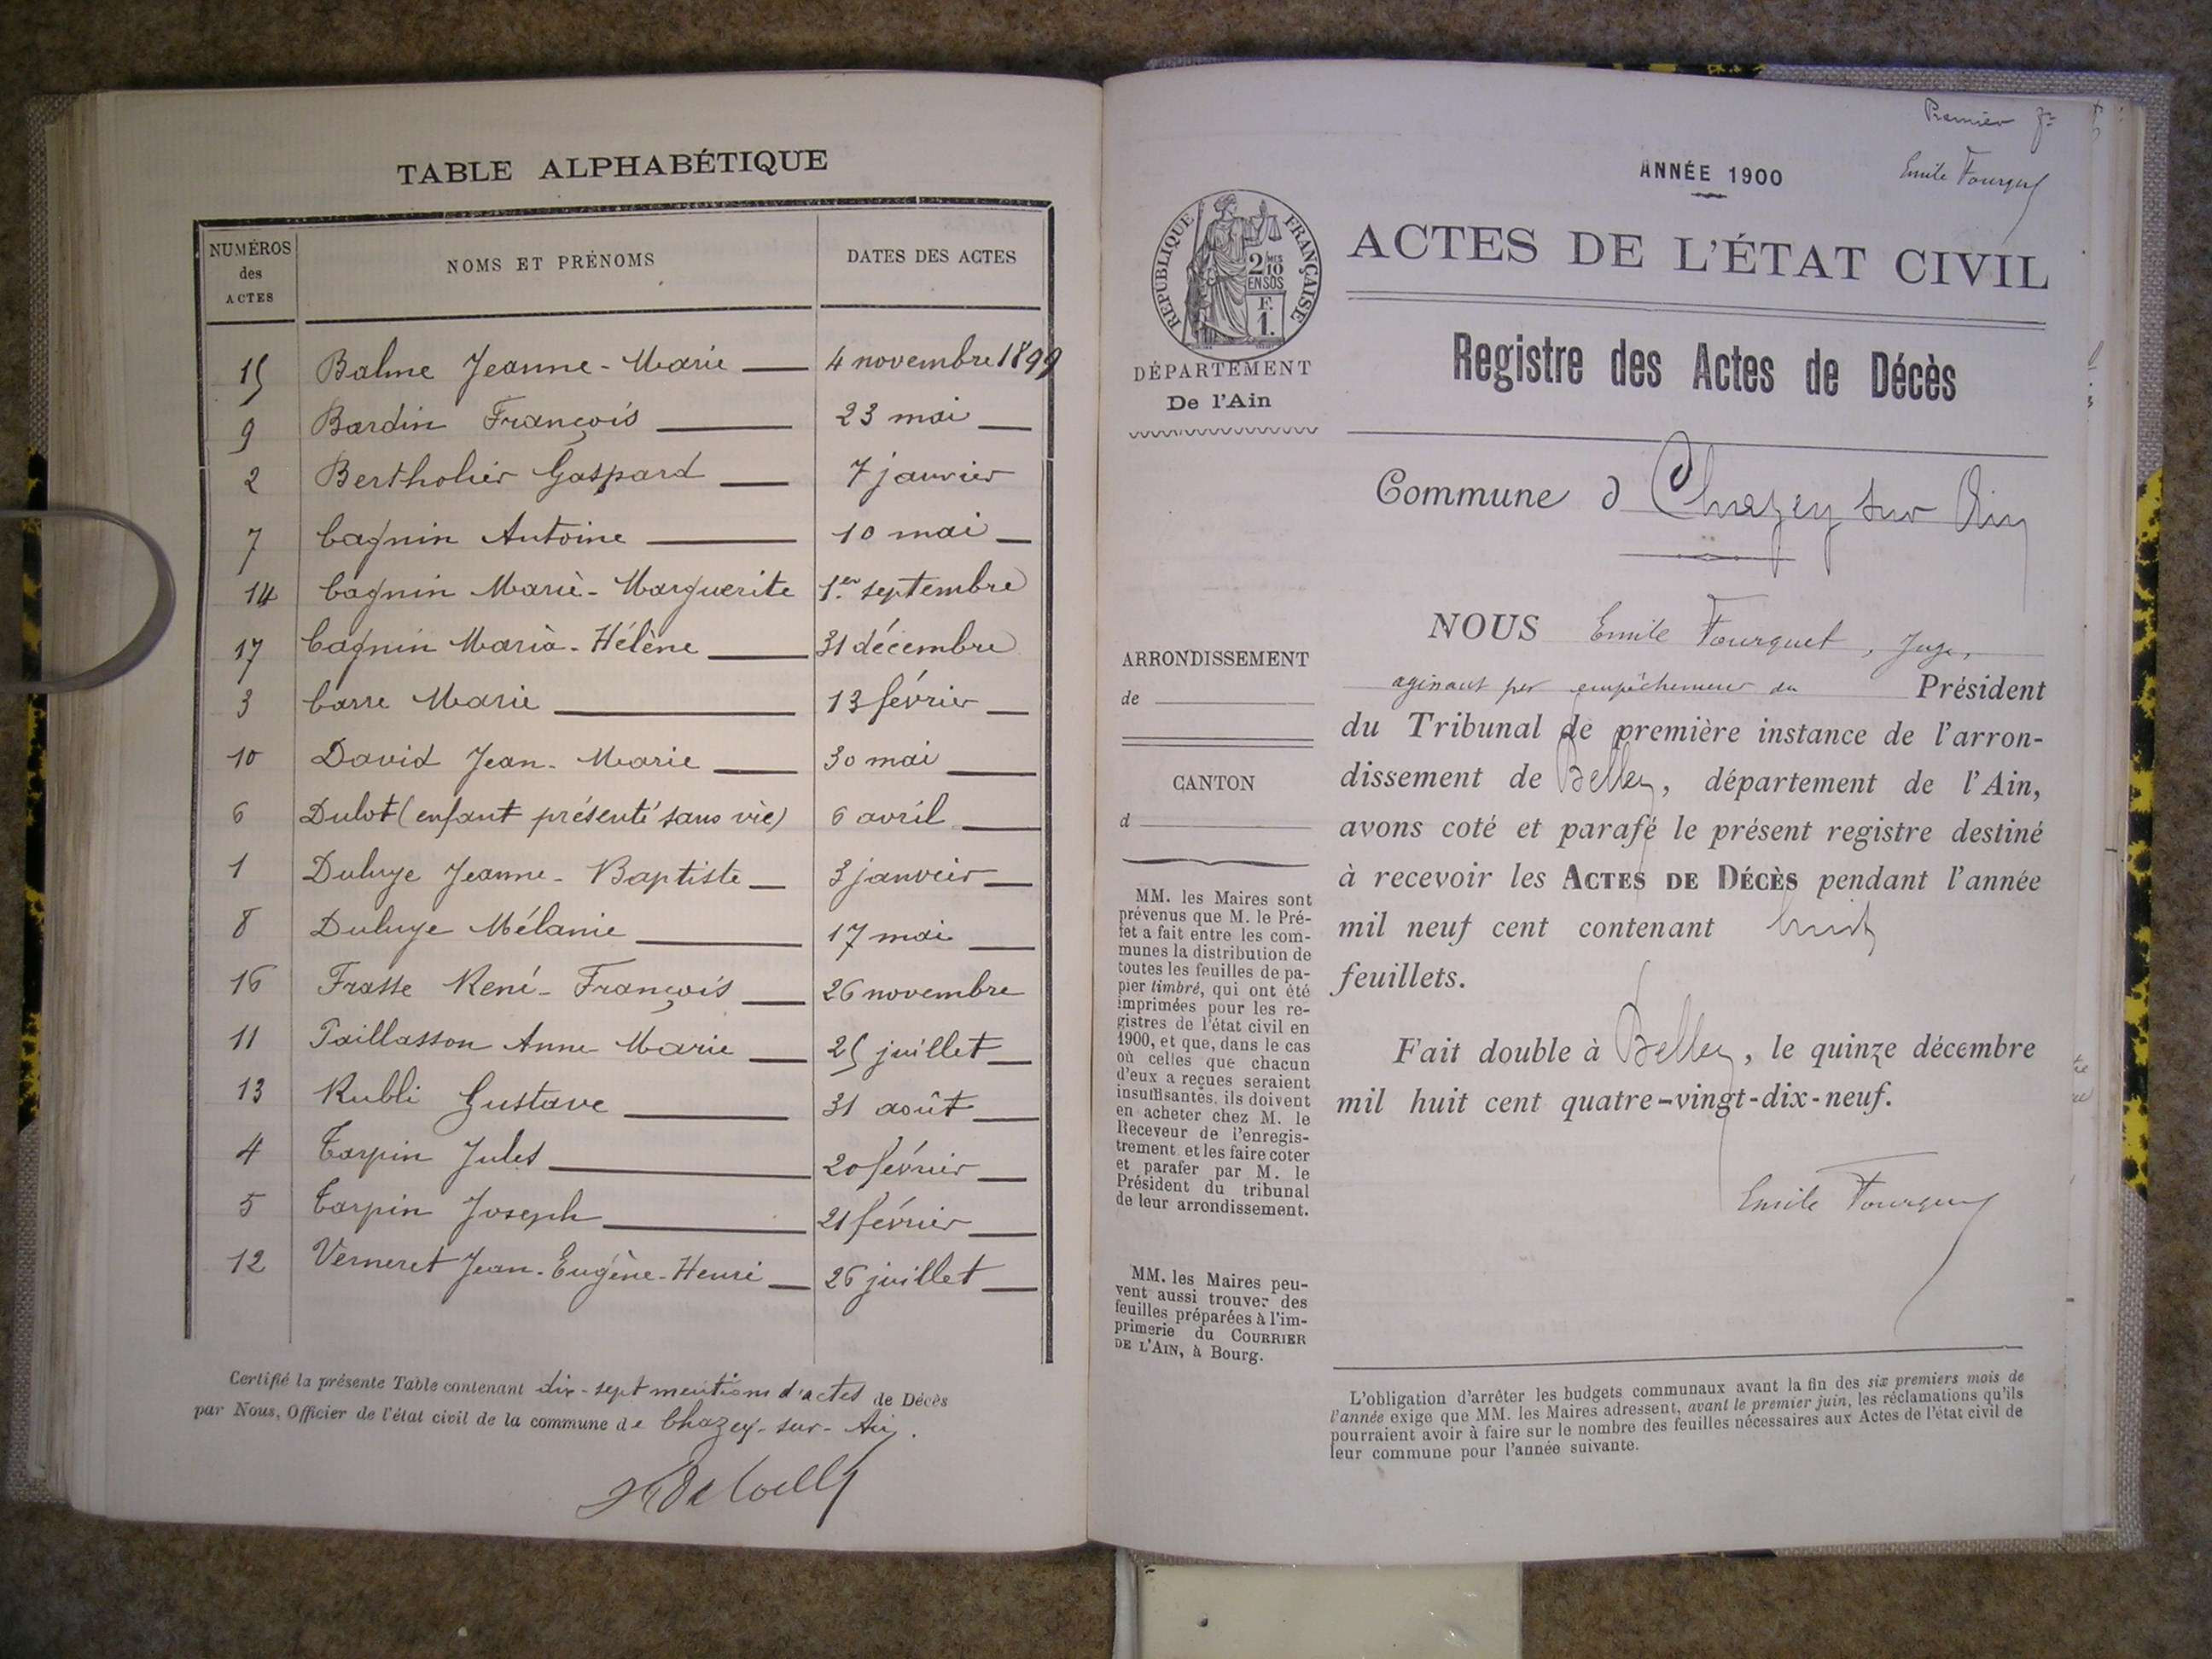 TABLE ALPHABÉTIQUE
NUMÉROS des ACTES NOMS ET PRÉNOMS DATES DES ACTES
15 Balme Jeanne-Marie 4 novembre 1899
9 Bardin François 23 mai
2 Bertholier Gaspard 7 janvier
7 Cagnin Antoine 10 mai
14 Cagnin Marie-Marguerite 1er septembre
17 Cagnin Maria-Hélène 31 décembre
3 Carre Marie 13 février
10 David Jean-Marie 30 mai
6 Dulot (enfant présenté sans vie) 6 avril
1 Duluye Jeanne-Baptiste 3 janvier
8 Duluye Mélanie 17 mai
16 Frasse René-François 26 novembre
11 Paillasson Anne Marie 25 juillet
13 Rubli Gustave 31 août
4 Tarpin Jules 20 février
5 Tarpin Joseph 21 février
12 Verneret Jean-Eugène-Henri 26 juillet
Certifié la présente Table contenant dix-sept mentions d'actes de Décès
par Nous, Officier de l'état civil de la commune de Chazey-sur-Ain.
Premier
ANNÉE 1900
Emile Fourquet
RÉPUBLIQUE FRANÇAISE
2/10 EN SUS
F. 1.
ACTES DE L'ÉTAT CIVIL
Registre des Actes de Décès
DÉPARTEMENT
De l'Ain
Commune d Chazey sur Ain
ARRONDISSEMENT
de
CANTON
d
MM. les Maires sont
prévenus que M. le Pré-
fet a fait entre les com-
munes la distribution de
toutes les feuilles de pa-
pier timbré, qui ont été
imprimées pour les re-
gistres de l'état civil en
1900, et que, dans le cas
où celles que chacun
d'eux a reçues seraient
insuffisantes, ils doivent
en acheter chez M. le
Receveur de l'enregis-
trement et les faire coter
et parafer par M. le
Président du tribunal
de leur arrondissement.
MM. les Maires peu-
vent aussi trouver des
feuilles préparées à l'im-
primerie du COURRIER
DE L'AIN, à Bourg.
NOUS Emile Fourquet, Juge,
agissant par empêchement du Président
du Tribunal de première instance de l'arron-
dissement de Belley, département de l'Ain,
avons coté et parafé le présent registre destiné
à recevoir les ACTES DE DÉCÈS pendant l'année
mil neuf cent contenant huit
feuillets.
Fait double à Belley, le quinze décembre
mil huit cent quatre-vingt-dix-neuf.
Emile Fourquet
L'obligation d'arrêter les budgets communaux avant la fin des six premiers mois de
l'année exige que MM. les Maires adressent, avant le premier juin, les réclamations qu'ils
pourraient avoir à faire sur le nombre des feuilles nécessaires aux Actes de l'état civil de
leur commune pour l'année suivante.